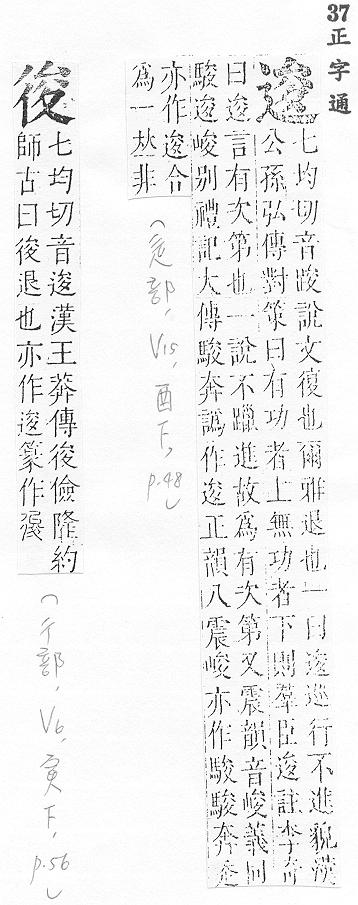 37 正字通
逡
七均切音踆說文復也爾雅退也一曰逡巡行不進貌漢
公孫弘傳對策曰有功者上無功者下則羣臣逡註李奇
曰逡言有次第也一說不躐進故爲有次第又震韻音峻義同
駿逡峻別禮記大傳駿奔譌作逡正韻八震峻亦作駿駿奔逡
亦作逡合
爲一𠀤非
(辵部, V15, 酉下, p.48)
俊
七均切音逡漢王莽傳後儉隆約
師古曰後退也亦作逡篆作
(彳部, V6, 寅下, p.56)